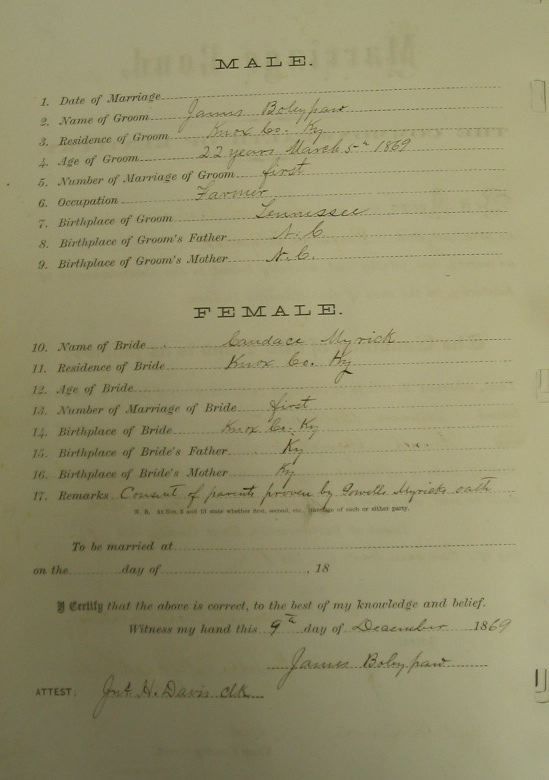 MALE.
1. Date of Marriage
2. Name of Groom James Bolinpaw
3. Residence of Groom Knox Co. Ky
4. Age of Groom 22 years March 5th 1869
5. Number of Marriage of Groom first
6. Occupation Farmer
7. Birthplace of Groom Tennessee
8. Birthplace of Groom's Father N. C
9. Birthplace of Groom's Mother N. C.
FEMALE.
10. Name of Bride Candace Myrick
11. Residence of Bride Knox Co. Ky
12. Age of Bride
13. Number of Marriage of Bride first
14. Birthplace of Bride Knox Co. Ky
15. Birthplace of Bride's Father Ky
16. Birthplace of Bride's Mother Ky
17. Remarks Consent of parents proven by Myricks oath
N. B. At Nos. 5 and 13 state whether first, second, etc., Marriage of each or either party.
To be married at
on the day of , 18
I Certify that the above is correct, to the best of my knowledge and belief.
Witness my hand this 9th day of December 1869
James Bolinpaw
ATTEST: Jno. H. Davis clk